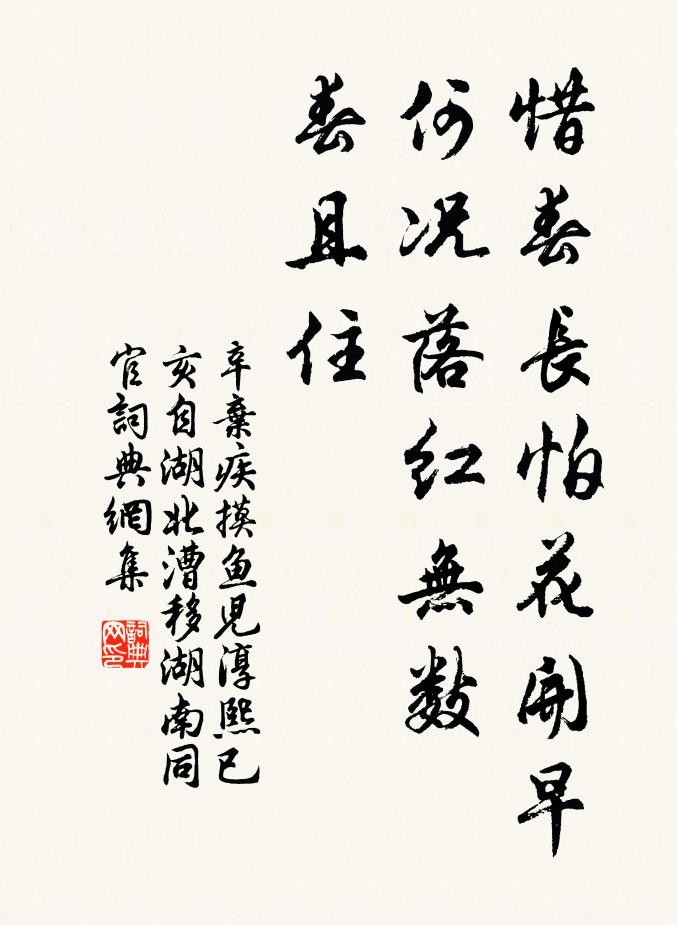 惜春長怕花開早
何况落紅無數
春且住
辛棄疾摸魚兒淳熙已
亥自湖北漕移湖南同
官詞典網集
詞典网印